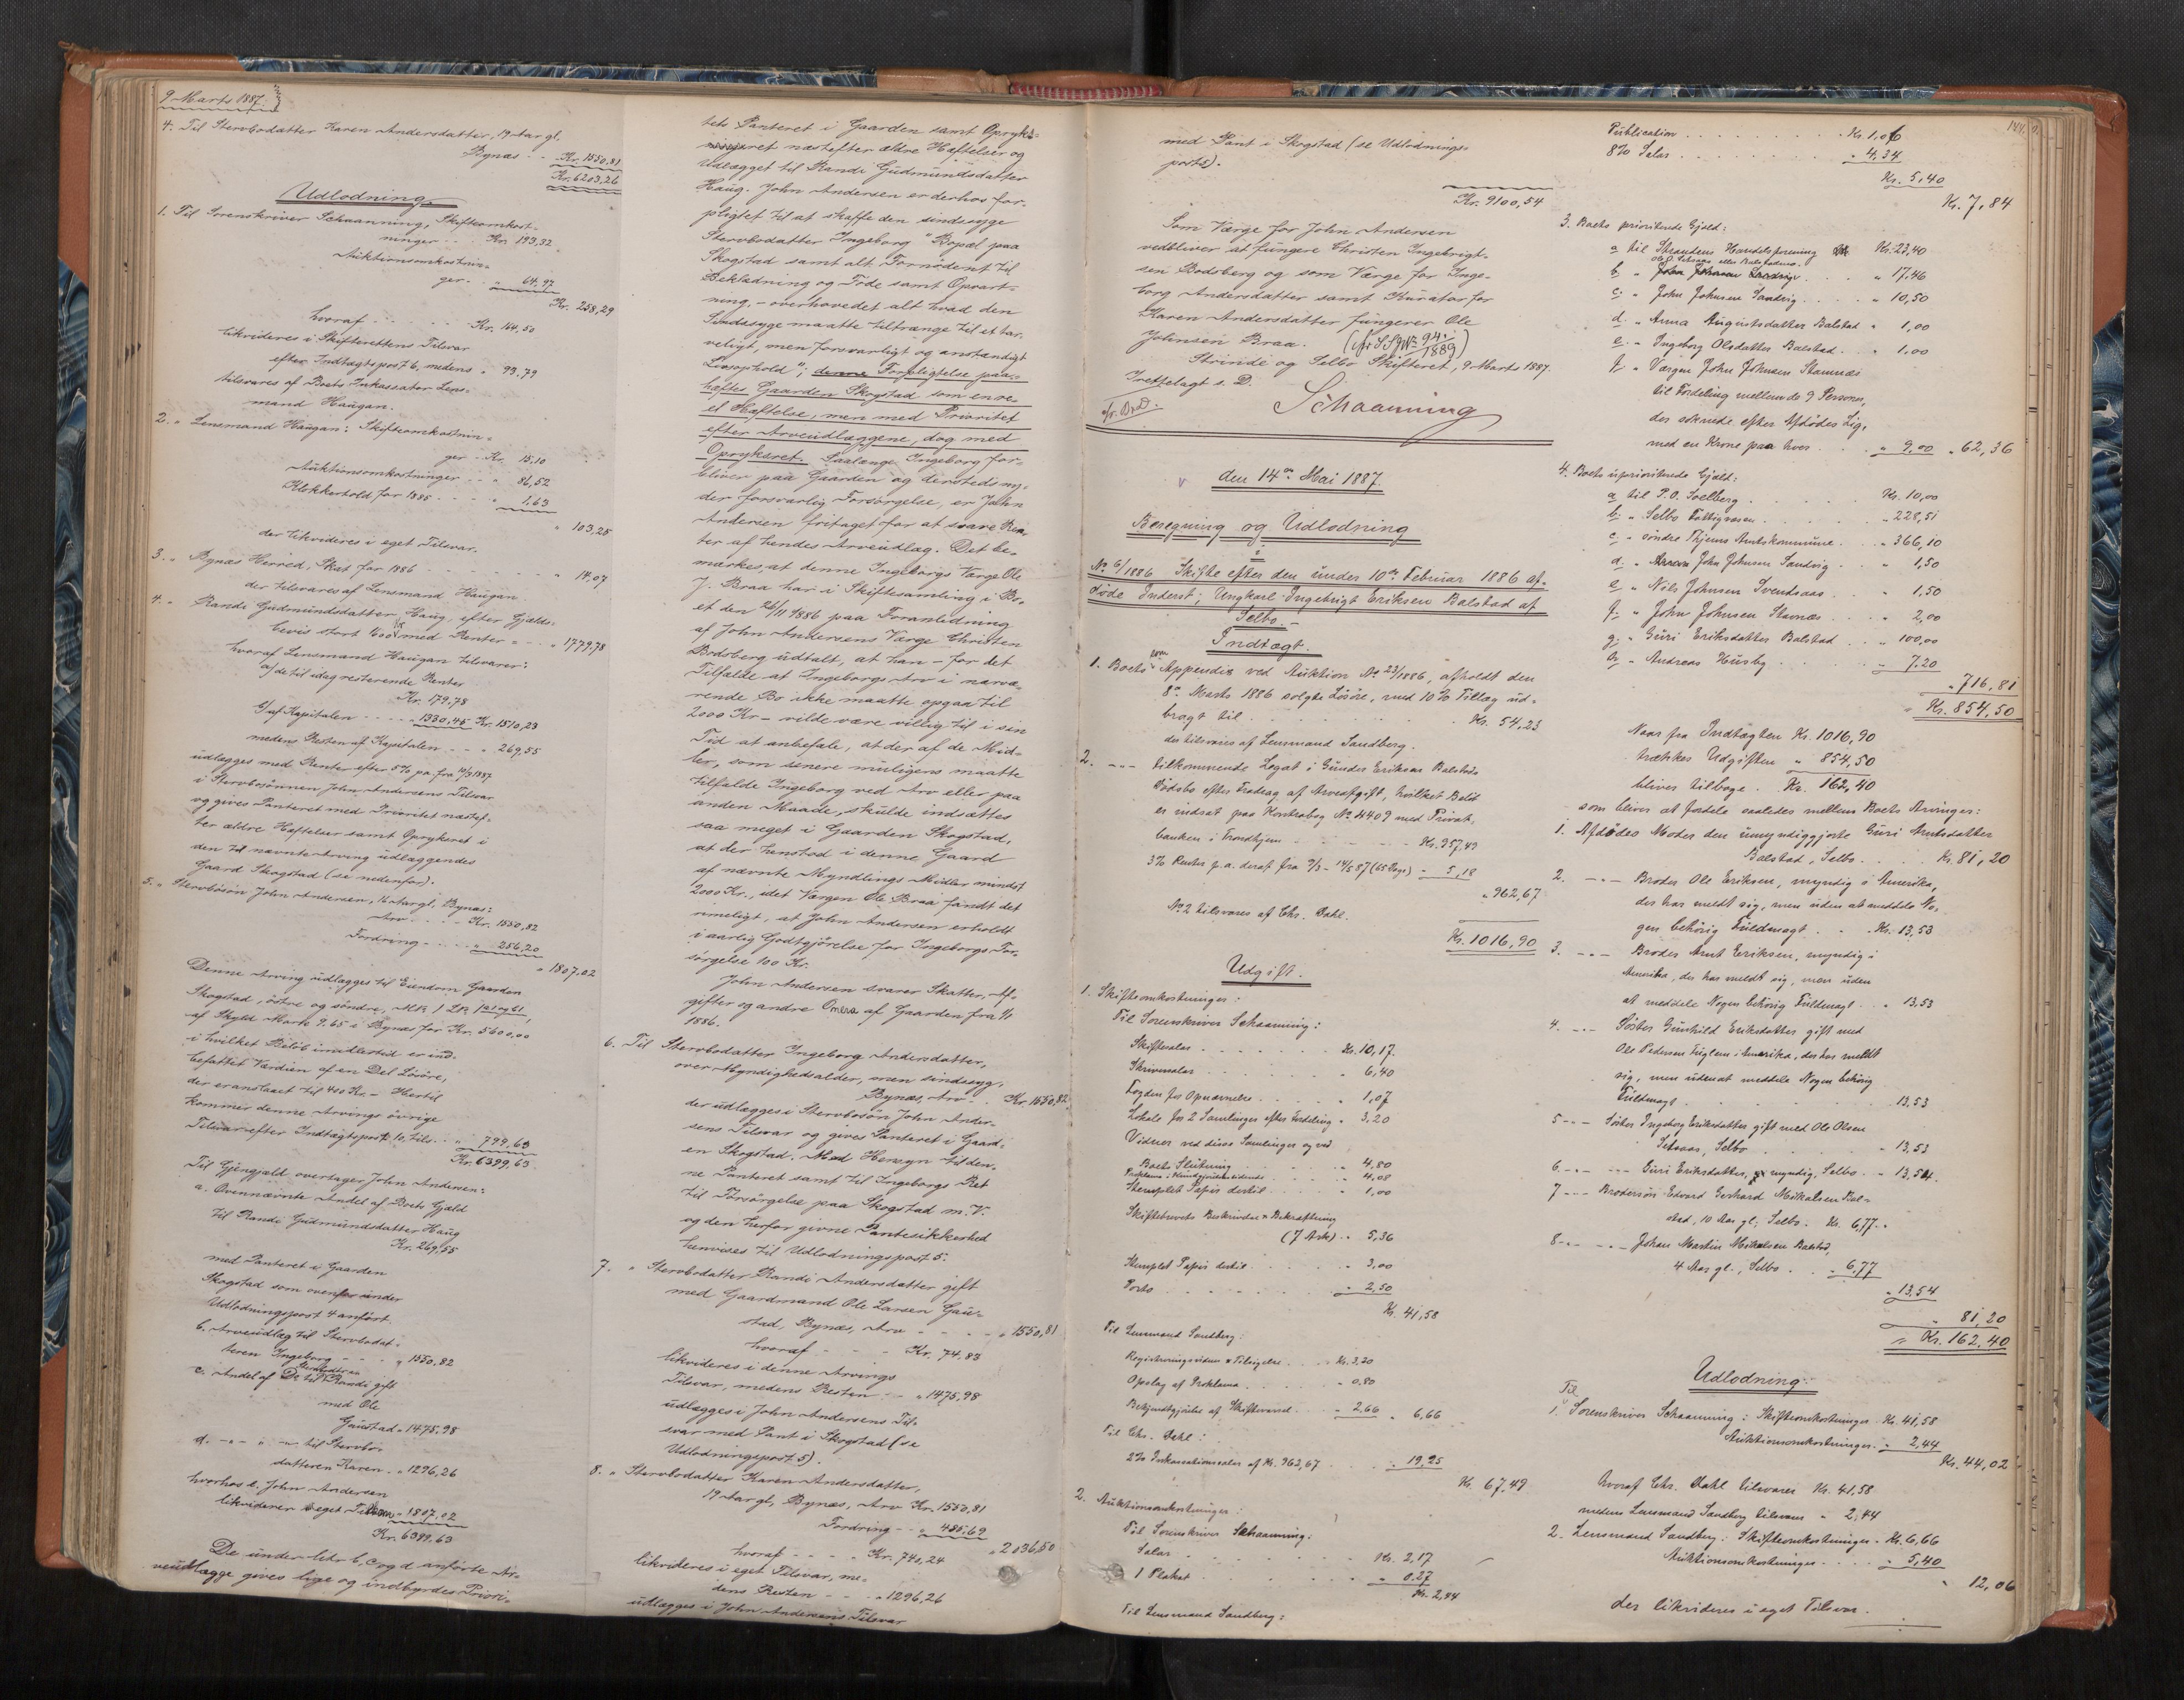 9 Marts 1887.
4. Til Stervbodatter Karen Andersdatter, 19 Aar gl.
Bynæs - - Kr. 1550,81
Kr. 6203,26
Udlodning.
1. Til Sorenskriver Schaanning, Skifteomkost-
ninger - - Kr. 193,32
Auktionsomkostnin-
ger - - " 64,97
Kr. 258,29
hvoraf - - - - - Kr. 164,50
likvideres i Skifterettens Tilsvar
efter Indtægtspost 6, medens " 93,79
tilsvares af Boets Inkassator Lens-
mand Haugan.
2. " Lensmand Haugan: Skifteomkostnin-
ger - Kr. 15,10
Auktionsomkostninger - - " 86,52
Klokkerhold for 1885 - - - " 1,63
" 103,25
der likvideres i eget Tilsvar.
3. " Bynæs Herred, Skat for 1886 - - - - " 14,07
der tilsvares af Lensmand Haugan.
4. " Randi Gudmundsdatter Haug, efter Gjælds-
bevis stort 1600 Kr med Renter - - " 1779,78
hvoraf Lensmand Haugan tilsvarer:
a/ de til idag resterende Renter
Kr. 179,78
b/ af Kapitalen - - - " 1330,45 Kr. 1510,23
medens Resten af Kapitalen - - - " 269,55
udlægges med Renter efter 5% pa. fra 10/3 1887
i Stervbosønnen John Andersens Tilsvar
og gives Panteret med Prioritet næstef-
ter ældre Hæftelser samt Oprykret i
den til nævnte Arving udlæggendes
Gaard Skogstad (se nedenfor).
5. " Stervbosøn John Andersen, 16 Aar gl., Bynæs:
Arv - - - - Kr. 1550,82
Fordring - - - - " 256,20
" 1807,02
Denne Arving udlægges til Eiendom Gaarden
Skogstad, østre og søndre,
af Skyld Mark 9.65 i Bynæs for Kr. 5600,00
i hvilket Beløb imidlertid er ind-
befattet Værdien af en Del Løsøre,
der er anslaaet til 400 Kr. - Hertil
kommer denne Arvings øvrige
Tilsvar efter Indtægtspost 10, tils. - " 799,63
Kr. 6399,63
Til Gjengjæld overtager John Andersen:
a. Ovennævnte Andel af Boets Gjæld
til Randi Gudmundsdatter Haug
Kr. 269,55
med Panteret i Gaarden
Skogstad som ovenfor under
Udlodningspost 4 anført.
b. Arveudlæg til Stervbodat-
teren Ingeborg - - - " 1550,82
c. Andel af Do til Stervbodatteren Randi gift
med Ole
Gaustad " 1475,98
d. - " - " - " - til Stervbo-
datteren Karen - " 1296,26
hvorhos e. John Andersen
likviderer i eget Tilsvar " 1807,02
Kr. 6399,63
De under litr b, c og d anførte Ar-
veudlægge gives lige og indbyrdes Priori-
tets Panteret i Gaarden samt Opryks-
ret næstefter ældre Hæftelser og
Udlægget til Randi Gudmundsdatter
Haug. John Andersen er derhos for-
pligtet til at skaffe den sindssyge
Stervbodatter Ingeborg "Bopæl paa
Skogstad samt alt Fornødent til
Beklædning og Føde samt Opvart-
ning, - overhovedet alt hvad den
Sindssyge maatte tiltrænge til et tar-
veligt, men forsvarligt og anstændigt
Livsophold"; denne Forpligtelse paa-
hæftes Gaarden Skogstad som en re-
el Hæftelse, men med Prioritet
efter Arveudlæggene, dog med
Oprykret. Saalænge Ingeborg for-
bliver paa Gaarden og dersteds ny-
der forsvarlig Forsørgelse, er John
Andersen fritaget for at svare Ren-
ter af hendes Arveudlæg. Det be-
mærkes, at denne Ingeborgs Værge Ole
J. Braa har i Skiftesamling i Bo-
et den 26/11 1886 paa Foranledning
af John Andersens Værge Christen
Bodsberg udtalt, at han - for det
Tilfælde at Ingeborgs Arv i nærvæ-
rende Bo ikke maatte opgaa til
2000 Kr - vilde være villig til i sin
Tid at anbefale, at der af de Mid-
ler, som senere muligens maatte
tilfalde Ingeborg ved Arv eller paa
anden Maade, skulde indsættes
saa meget i Gaarden Skogstad,
at der henstod i denne Gaard
af nævnte Myndlings Midler mindst
2000 Kr., idet Værgen Ole Braa fandt det
rimeligt, at John Andersen erholdt
i aarlig Godtgjørelse for Ingeborgs For-
sørgelse 100 Kr.
John Andersen svarer Skatter, Af-
gifter og andre Onera af Gaarden fra 1/1
1886.
6. Til Stervbodatter Ingeborg Andersdatter,
over Myndighedsalder, men sindssyg,
Bynæs, Arv - - Kr. 1550,82
der udlægges i Stervbosøn John Ander-
sens Tilsvar og gives Panteret i Gaard-
en Skogstad. Med Hensyn til den-
ne Panteret samt til Ingeborgs Ret
til Forsørgelse paa Skogstad m.V.
og den herfor givne Pantesikkerhed
henvises til Udlodningspost 5.
7. " Stervbodatter Randi Andersdatter gift
med Gaardmand Ole Larsen Gau-
stad, Bynæs, Arv - - - - " 1550,81
hvoraf - - - Kr. 74,83
likvideres i denne Arvings
Tilsvar, medens Resten - - " 1475,98
udlægges i John Andersens Til-
svar med Pant i Skogstad (se
Udlodningspost 5).
8. " Stervbodatter Karen Andersdatter,
19 Aar gl., Bynæs, Arv Kr. 1550,81
Fordring - - " 485,69
" 2036,50
hvoraf - - - - Kr. 740,24
likvideres i eget Tilsvar, me-
dens Resten - - - - " 1296,26
udlægges i John Andersens Tilsvar
med Pant i Skogstad (se Udlodnings-
post 5).
Kr. 9100,54
Som Værge for John Andersen
vedbliver at fungere Christen Ingebrigt-
sen Bodsberg og som Værge for Inge-
borg Andersdatter samt Kurator for
Karen Andersdatter fungerer Ole
Johnsen Braa.
Strinde og Selbo Skifteret, 9 Marts 1887.
Irettelagt s. D.
Schaanning
den 14de Mai 1887.
Beregning og Udlodning
i
No 6/1886 Skifte efter den under 10de Februar 1886 af-
døde Inderst, Ungkarl Ingebrigt Eriksen Balstad af
Selbo.
Indtægt.
1. Boets som Appendix ved Auktion No 23/1886, afholdt den
8de Marts 1886 solgte Løsøre, med 10% Tillæg ud-
bragt til - - - - Kr. 54,23
der tilsvares af Lensmand Sandberg.
2. - " - tilkommende Legat i Gunder Eriksen Balstads
Dødsbo efter Fradrag af Arveafgift, hvilket Beløb
er indsat paa Kontrabog No 4409 med Privat-
banken i Trondhjem - - - - Kr. 957,49
3% Renter p.a. deraf fra 9/3 - 14/5 87 (65 Dage) " 5,18
" 962,67
No 2 tilsvares af Chr. Dahl.
Kr. 1016,90
Udgift.
1. Skifteomkostninger:
Til Sorenskriver Schaanning:
Skiftesalær - - - - Kr. 10,17.
Skriversalær - - - - " 6,40
Fogden for Opnævnelse - - - " 1,07
Lokale for 2 Samlinger efter Fordeling " 3,20
Vidner ved disse Samlinger og ved
Boets Slutning - - - - " 4,80
Proklama i Kundgjørelsestidende - - " 4,08
Stemplet Papir dertil - - - " 1,00
Skiftebrevets Beskrivelse & Bekræftning
(7 Ark) - " 5,36
Stemplet Papir dertil - - - " 3,00
Porto - - - - " 2,50
Kr. 41,58
Til Lensmand Sandberg:
Registreringsvidner & Tilsigelse - - Kr. 3,20
Opslag af Proklama - - - " 0,80
Bekjendtgjørelse af Skiftevarsel - - " 2,66 " 6,66
Til Chr. Dahl:
2% Inkassationssalær af Kr. 962,67 - - " 19,25
Kr. 67,49
2. Auktionsomkostninger:
Til Sorenskriver Schaanning:
Salær - - - - Kr. 2,17
1 Plakat - - - - " 0,27
Kr. 2,44
Til Lensmand Sandberg:
Publication - - - - Kr. 1,06
8% Salær - - - - " 4,34
Kr. 5,40
Kr. 7,84
3. Boets prioriterede Gjæld:
a til Strandens Handelsforening Kr. 23,40
b " " 17,46
c. " John Johnsen Sandvig - - - " 10,50
d. " Anna Augustsdatter Balstad " 1,00
e. " Ingeborg Olsdatter Balstad - " 1,00
f. " Værgen John Johnsen Stamnæs
til Fordeling mellem de 9 Personer,
der søknede efter Afdødes Lig,
med en Krone paa hver - - " 9,00 " 62,36
4. Boets uprioriterede Gjæld:
a til P. O. Solberg - - - Kr. 10,00
b. " Selbo Fattigvæsen - - " 228,51
c. " søndre Thjems Amtskommune - " 366,10
d. " John Johnsen Sandvig - " 1,50
e. " Nils Johnsen Svendsaas - - " 1,50
f. " John Johnsen Stamnæs - - " 2,00
g. " Guri Eriksdatter Balstad - - " 100,00
h. " Andreas Husby - - - " 7,20
" 716,81
Kr. 854,50
Naar fra Indtægten Kr. 1016,90
trækkes Udgiften " 854,50
bliver tilbage - Kr. 162,40
som bliver at fordele saaledes mellem Boets Arvinger:
1. Afdødes Moder den umyndiggjorte Guri Arntsdatter
Balstad, Selbo - - - Kr. 81,20
2. - " - Broder Ole Eriksen, myndig i Amerika,
der har meldt sig, men uden at meddele No-
gen behørig Fuldmagt - - Kr. 13,53
3. - " - Broder Arnt Eriksen, myndig i
Amerika, der har meldt sig, men uden
at meddele Nogen behørig Fuldmagt - " 13,53
4. - " - Søster Gunhild Eriksdatter gift med
Ole Pedersen Fuglem i Amerika, der har meldt
sig, men uden at meddele Nogen behørig
Fuldmagt - - - " 13,53
5. - " - Søster Ingeborg Eriksdatter gift med Ole Olsen
Setsaas, Selbo - - - " 13,53
6. - " - - " - Guri Eriksdatter, myndig, Selbo - " 13,54.
7 - " - Brodersøn Edvard Gerhard Mikalsen Bal-
stad, 10 Aar gl., Selbo - Kr. 6,77 -
8 - " - - " - Johan Martin Mikalsen Balstad,
4 Aar gl., Selbo - - " 6,77
" 13,54
" 81,20
Kr. 162,40
Udlodning:
Til
1. Sorenskriver Schaanning: Skifteomkostninger - Kr. 41,58
Auktionsomkostninger - " 2,44
Kr. 44,02
hvoraf Chr. Dahl tilsvarer Kr. 41,58
medens Lensmand Sandberg tilsvarer " 2,44
2. Lensmand Sandberg: Skifteomkostninger - Kr. 6,66
Auktionsomkostninger - - - " 5,40
" 12,06
der likvideres i eget Tilsvar.